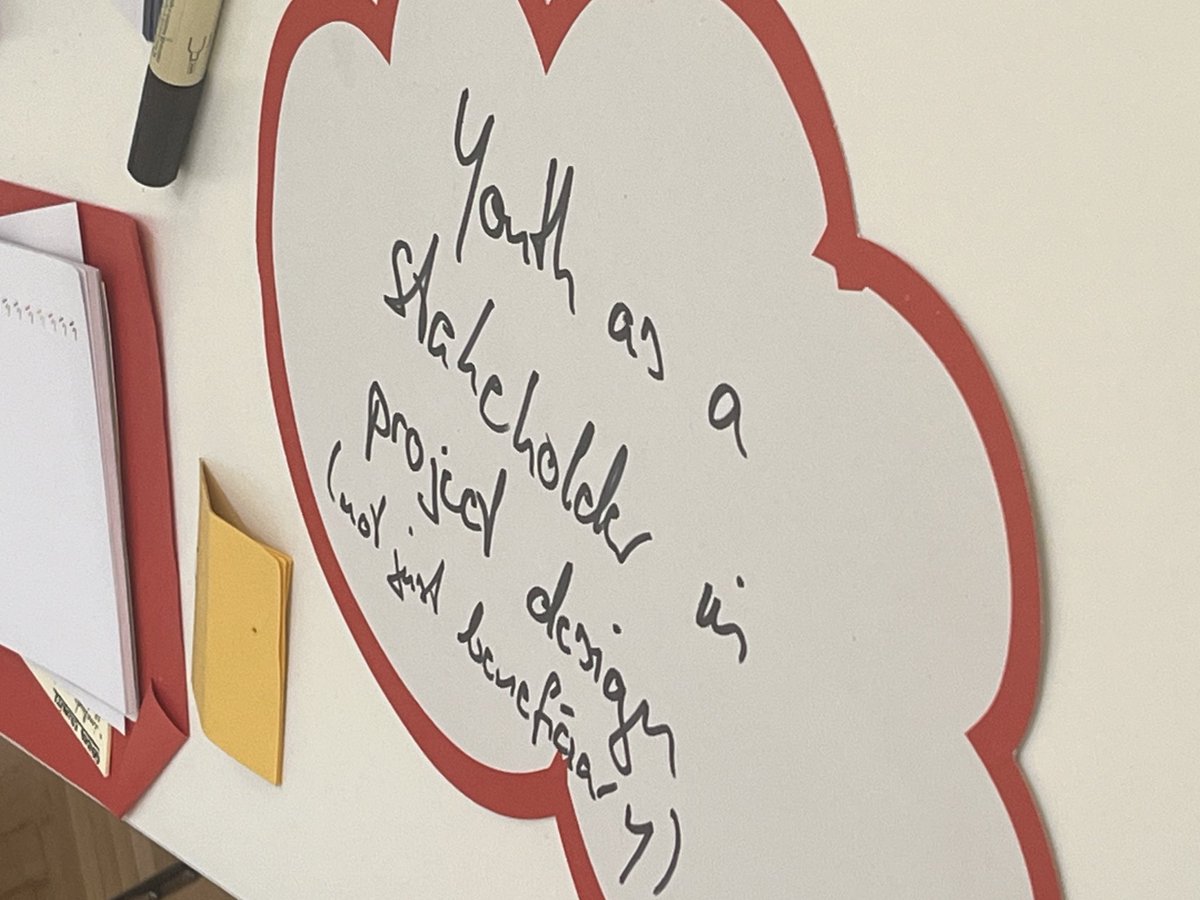 Youth as a
stakeholder in
project design
(not just beneficia-
ry)